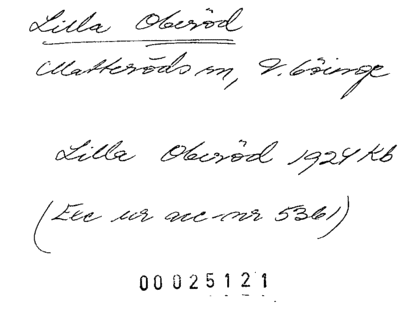 Lilla Oberöd
Matteröds sn, V. Göinge
Lilla Oberöd 1924 Kb
(Exc ur acc-nr 5361)
00025121